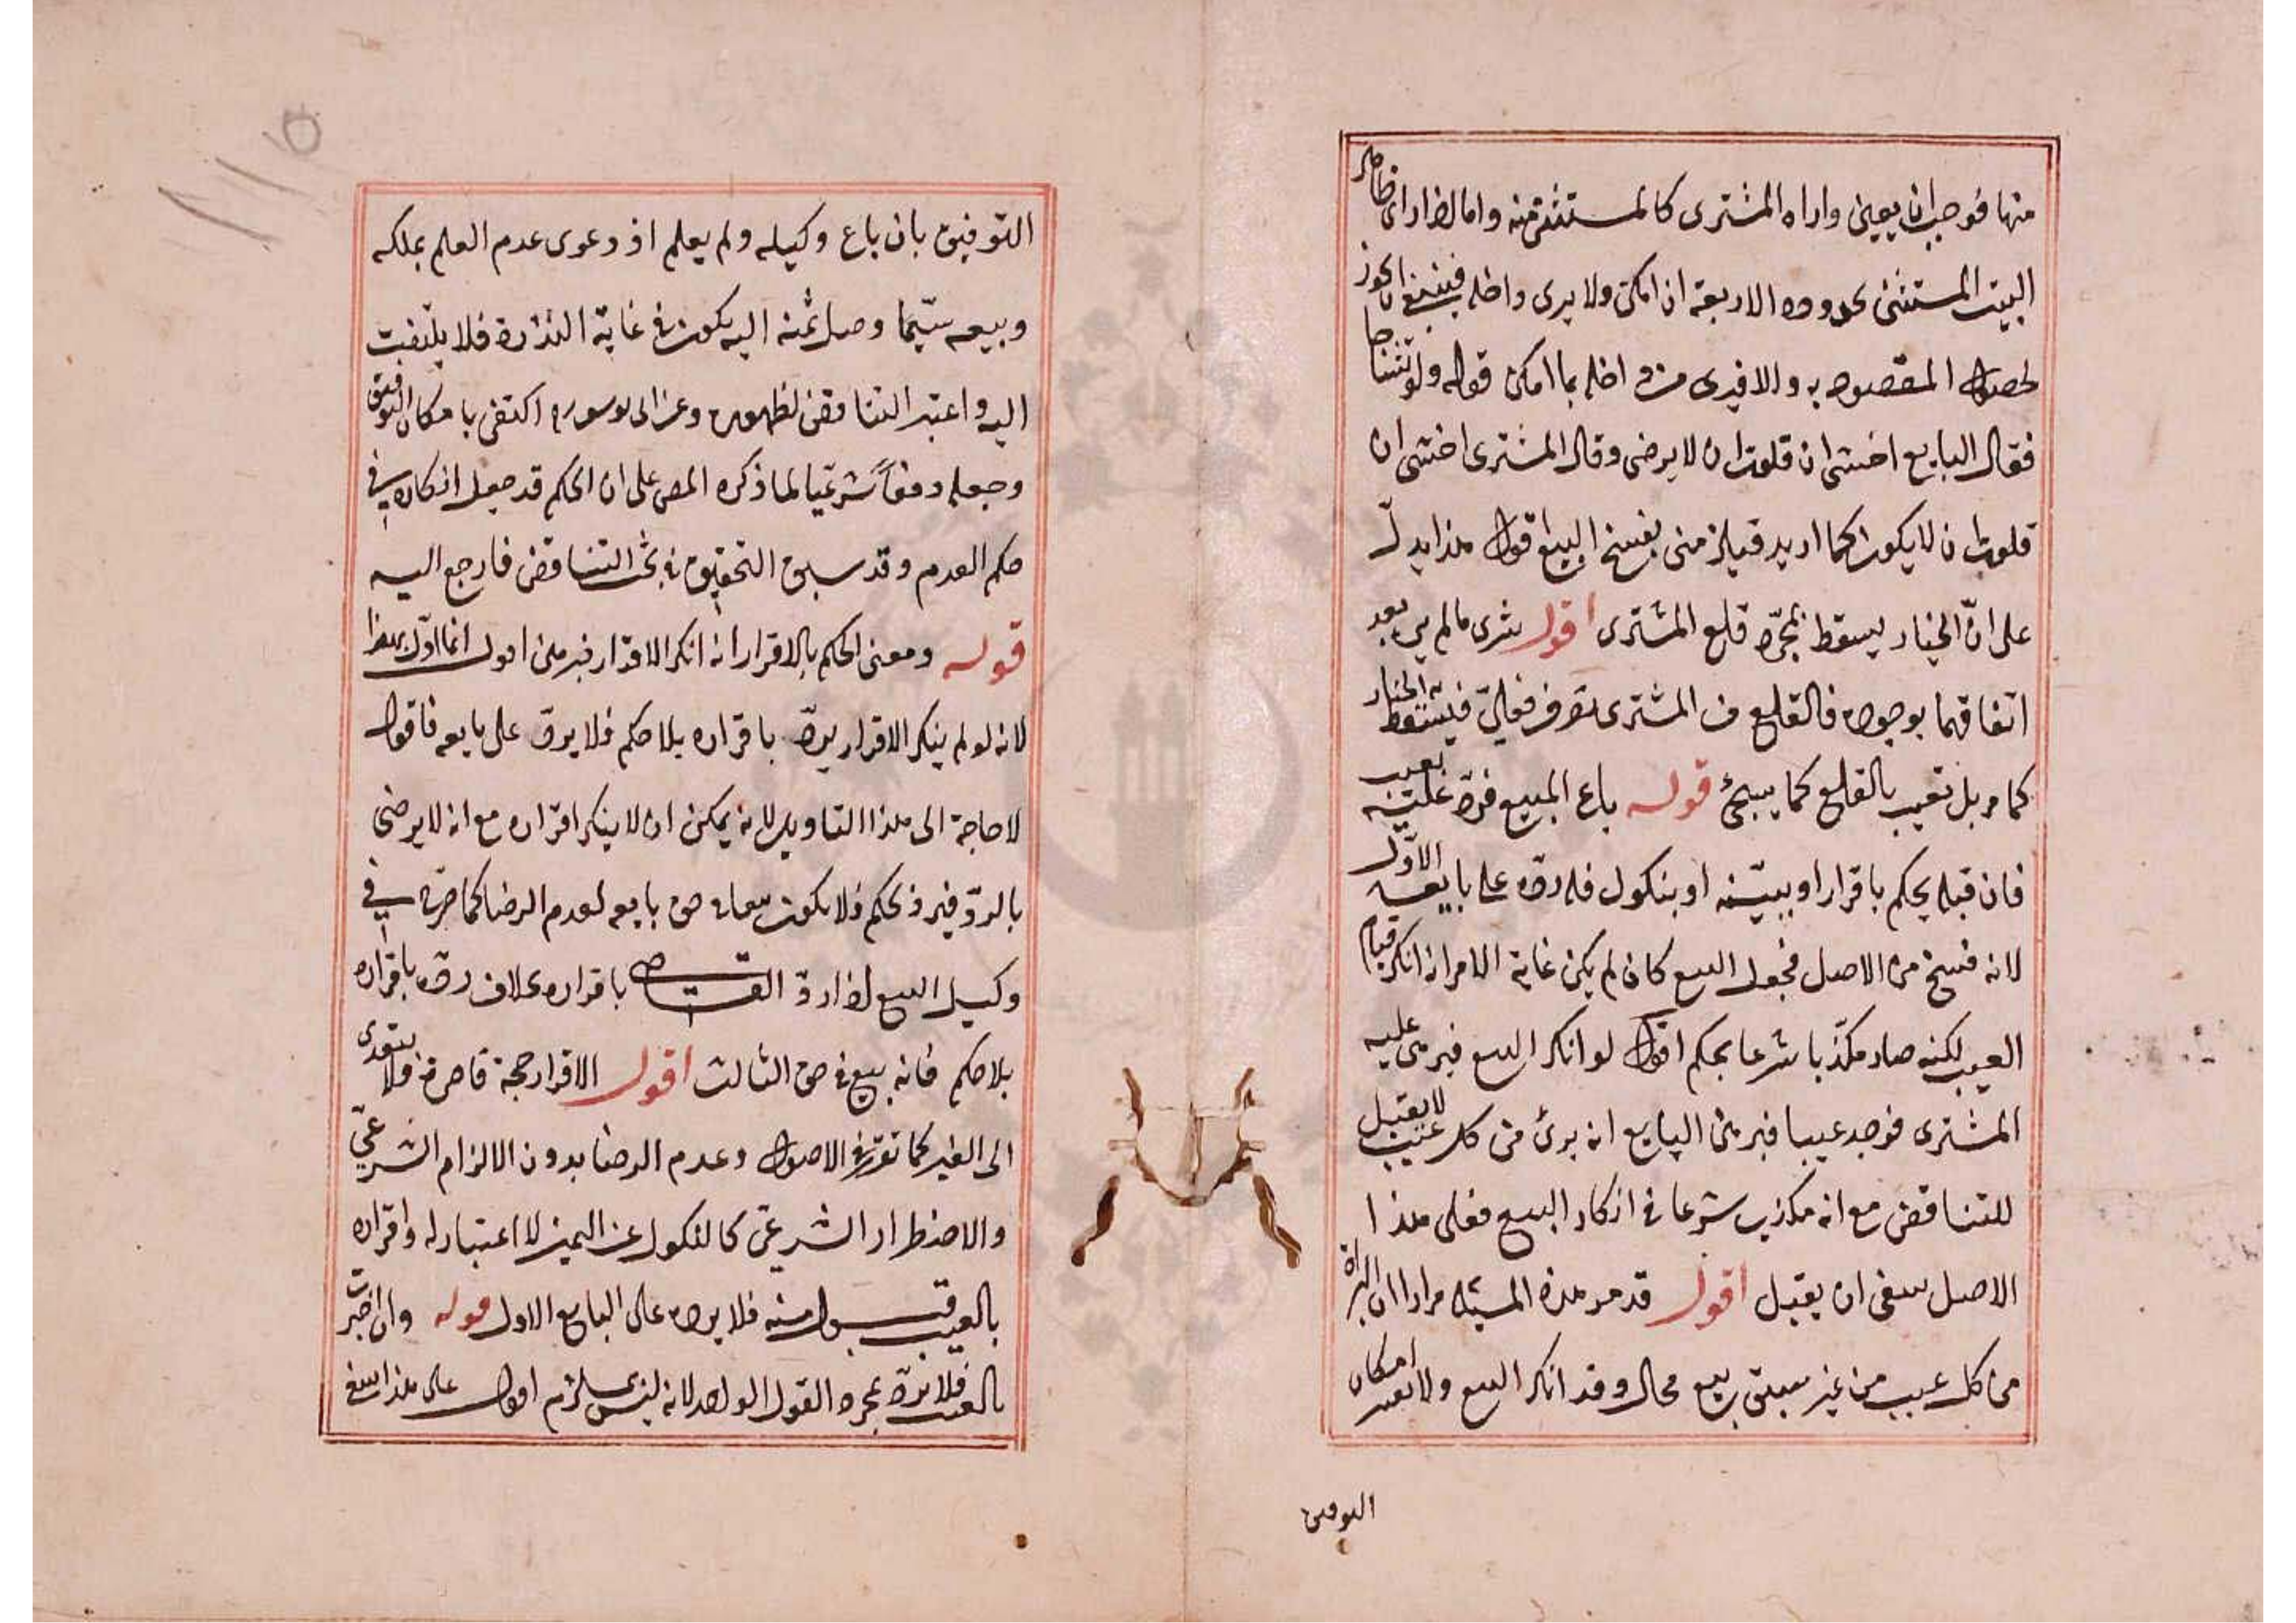 منها فوجب ان يعين واراه المشترى كالمستثنى منه واما اذا راى ظاهر
البيت المستثنى بحدوده الاربعة ان امكن ولا يرى داخله فينبغى ان يجوز
لحصول المقصود به والا فيرى من داخله بما امكن قوله ولو تشاحا
فقال البايع اخشى ان قلعت ان لا يرضى وقال المشترى اخشى ان
قلعت ان لا يكون كما اريد قيل من يفسخ البيع اقول هذا يدلّ
على انّ الخيار ليسقط بمجرّد قلع المشترى اقول شرى ما لم ير بعد
اتفاقهما بوجوده فالقلع من المشترى تصرف فعليّ فيسقط به الخيار
كما مر بل تعيب بالقلع كما يجئ قوله باع المبيع فردّ عليه بعيب
فان قبله بحكم باقرار او ببيّنه او بنكول فله ردّه على بايعه الاوّل
لانه فسخ من الاصل فجعل البيع كان لم يكن غاية الامر انه انكر قيام
العيب لكنه صار مكذّبا شرعا بحكم اقول لو انكر البيع فبرهن عليه
المشترى فوجد عيبا فبرهن البايع انه برئ من كل عيب لا يقبل
للتناقض مع انه مكذب شرعا في انكار البيع فعلى هذا
الاصل ينبغى ان يقبل اقول قد مر هذه المسئله مرارا ان البراة
من كل عيب من غير سبق بيع محال وقد انكر البيع ولا يعتبر امكان
التوفيق
التوفيق بان باع وكيله ولم يعلم اذ دعوى عدم العلم بملكه
وبيعه سيّما وصل ثمنه اليه يكون في غاية الندرة فلا يلتفت
اليه واعتبر التناقض لظهوره وعن ابى يوسف ره اكتفى بامكان التوفيق
وجعله دفعاً شرعيّا لما ذكره المص على ان الحكم قد جعل انكاره في
حكم العدم وقد سبق التحقيق في بحث التناقض فارجع اليه
قوله ومعنى الحكم بالاقرار انه انكر الاقرار فبرهن اقول انما اوّل بهذا
لانه لو لم ينكر الاقرار يردّ باقراره بلا حكم فلا يردّ على بايعه فاقول
لا حاجة الى هذا التاويل لانه يمكن ان لا ينكر اقراره مع انه لا يرضى
بالردّ فيرد بحكم فلا يكون بيعا في حق بايعه لعدم الرضا كما صرّح في
وكيل البيع اذا ردّ القاضى باقراره بخلاف ردّه باقراره
بلا حكم فانه بيع في حق الثالث اقول الاقرار حجة قاصرة فلا يتعدى
الى الغير كما تقرّر في الاصول وعدم الرضا بدون الالزام الشرعيّ
والاضطرار الشرعى كالنكول عن اليمين لا اعتبار له واقراره
بالعيب قبول منه فلا يرده على البايع الاول قوله وان اخبرت
بالعيب فلا تردّ بمجرد القول الواحد لانه ليس بملزم اقول على هذا ينبغى
١١٥